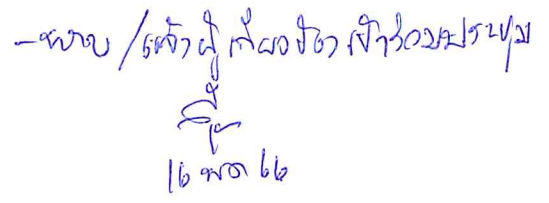 -ทราบ/แจ้งผู้เกี่ยวข้องเข้าร่วมประชุม
16 พค 66